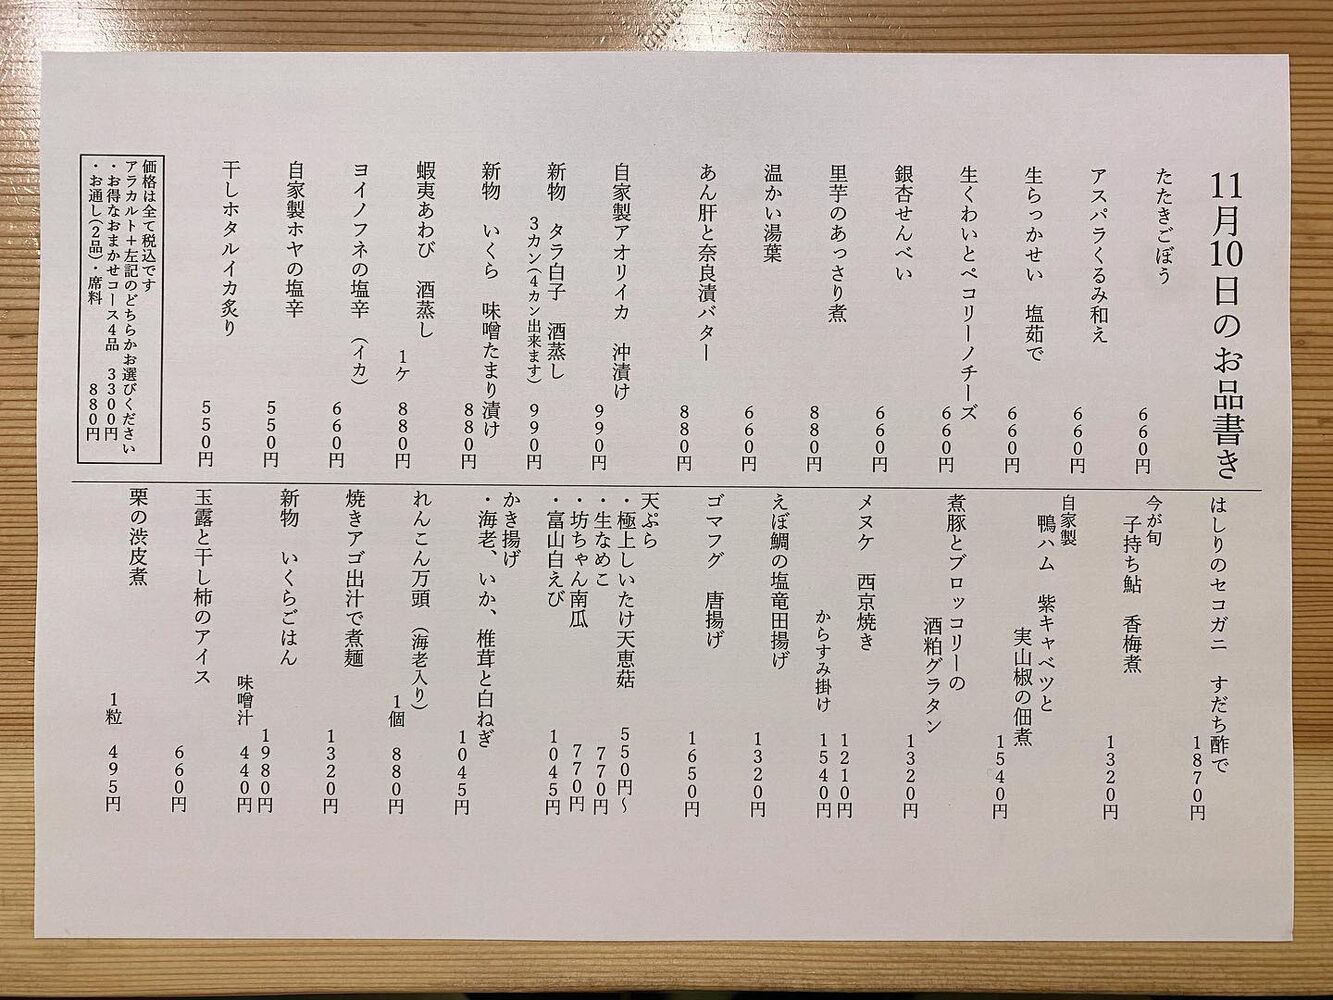 11月10日のお品書き
たたきごぼう
660円
アスパラくるみ和え
660円
生らっかせい 塩茹で
660円
生くわいとペコリーノチーズ
660円
銀杏せんべい
660円
里芋のあっさり煮
880円
温かい湯葉
660円
あん肝と奈良漬バター
880円
自家製アオリイカ 沖漬け
990円
新物 タラ白子 酒蒸し
3カン(4カン出来ます) 990円
新物 いくら 味噌たまり漬け
880円
蝦夷あわび 酒蒸し
1ケ 880円
ヨイノフネの塩辛 (イカ)
660円
自家製ホヤの塩辛
550円
干しホタルイカ炙り
550円
価格は全て税込です
アラカルト+左記のどちらかお選びください
・お得なおまかせコース4品 3300円
・お通し(2品)・席料 880円
はしりのセコガニ すだち酢で
1870円
今が旬
子持ち鮎 香梅煮
1320円
自家製
鴨ハム 紫キャベツと
実山椒の佃煮
1540円
煮豚とブロッコリーの
酒粕グラタン
1320円
メヌケ 西京焼き 1210円
からすみ掛け 1540円
えぼ鯛の塩竜田揚げ
1320円
ゴマフグ 唐揚げ
1650円
天ぷら
・極上しいたけ天恵菇 550円〜
・生なめこ 770円
・坊ちゃん南瓜 770円
・富山白えび 1045円
かき揚げ
・海老、いか、椎茸と白ねぎ
1045円
れんこん万頭 (海老入り)
1個 880円
焼きアゴ出汁で煮麺
1320円
新物 いくらごはん
1980円
味噌汁 440円
玉露と干し柿のアイス
660円
栗の渋皮煮
1粒 495円